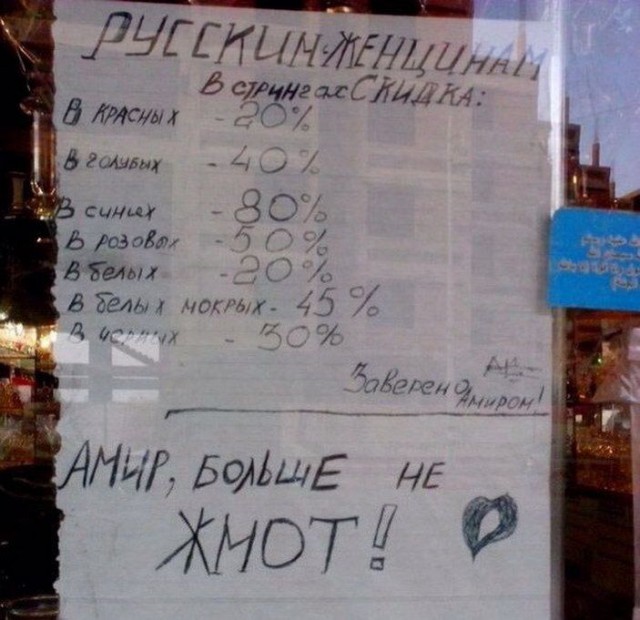 РУССКИМ-ЖЕНЩИНАМ
В стрингах СКИДКА:
В КРАСНЫХ - 20%
В голубых - 40%
В синих - 80%
В розовых - 50%
В белых - 20%
В белых мокрых - 45%
В черных - 30%
Заверено
Амиром!
АМИР, БОЛЬШЕ НЕ
ЖМОТ!